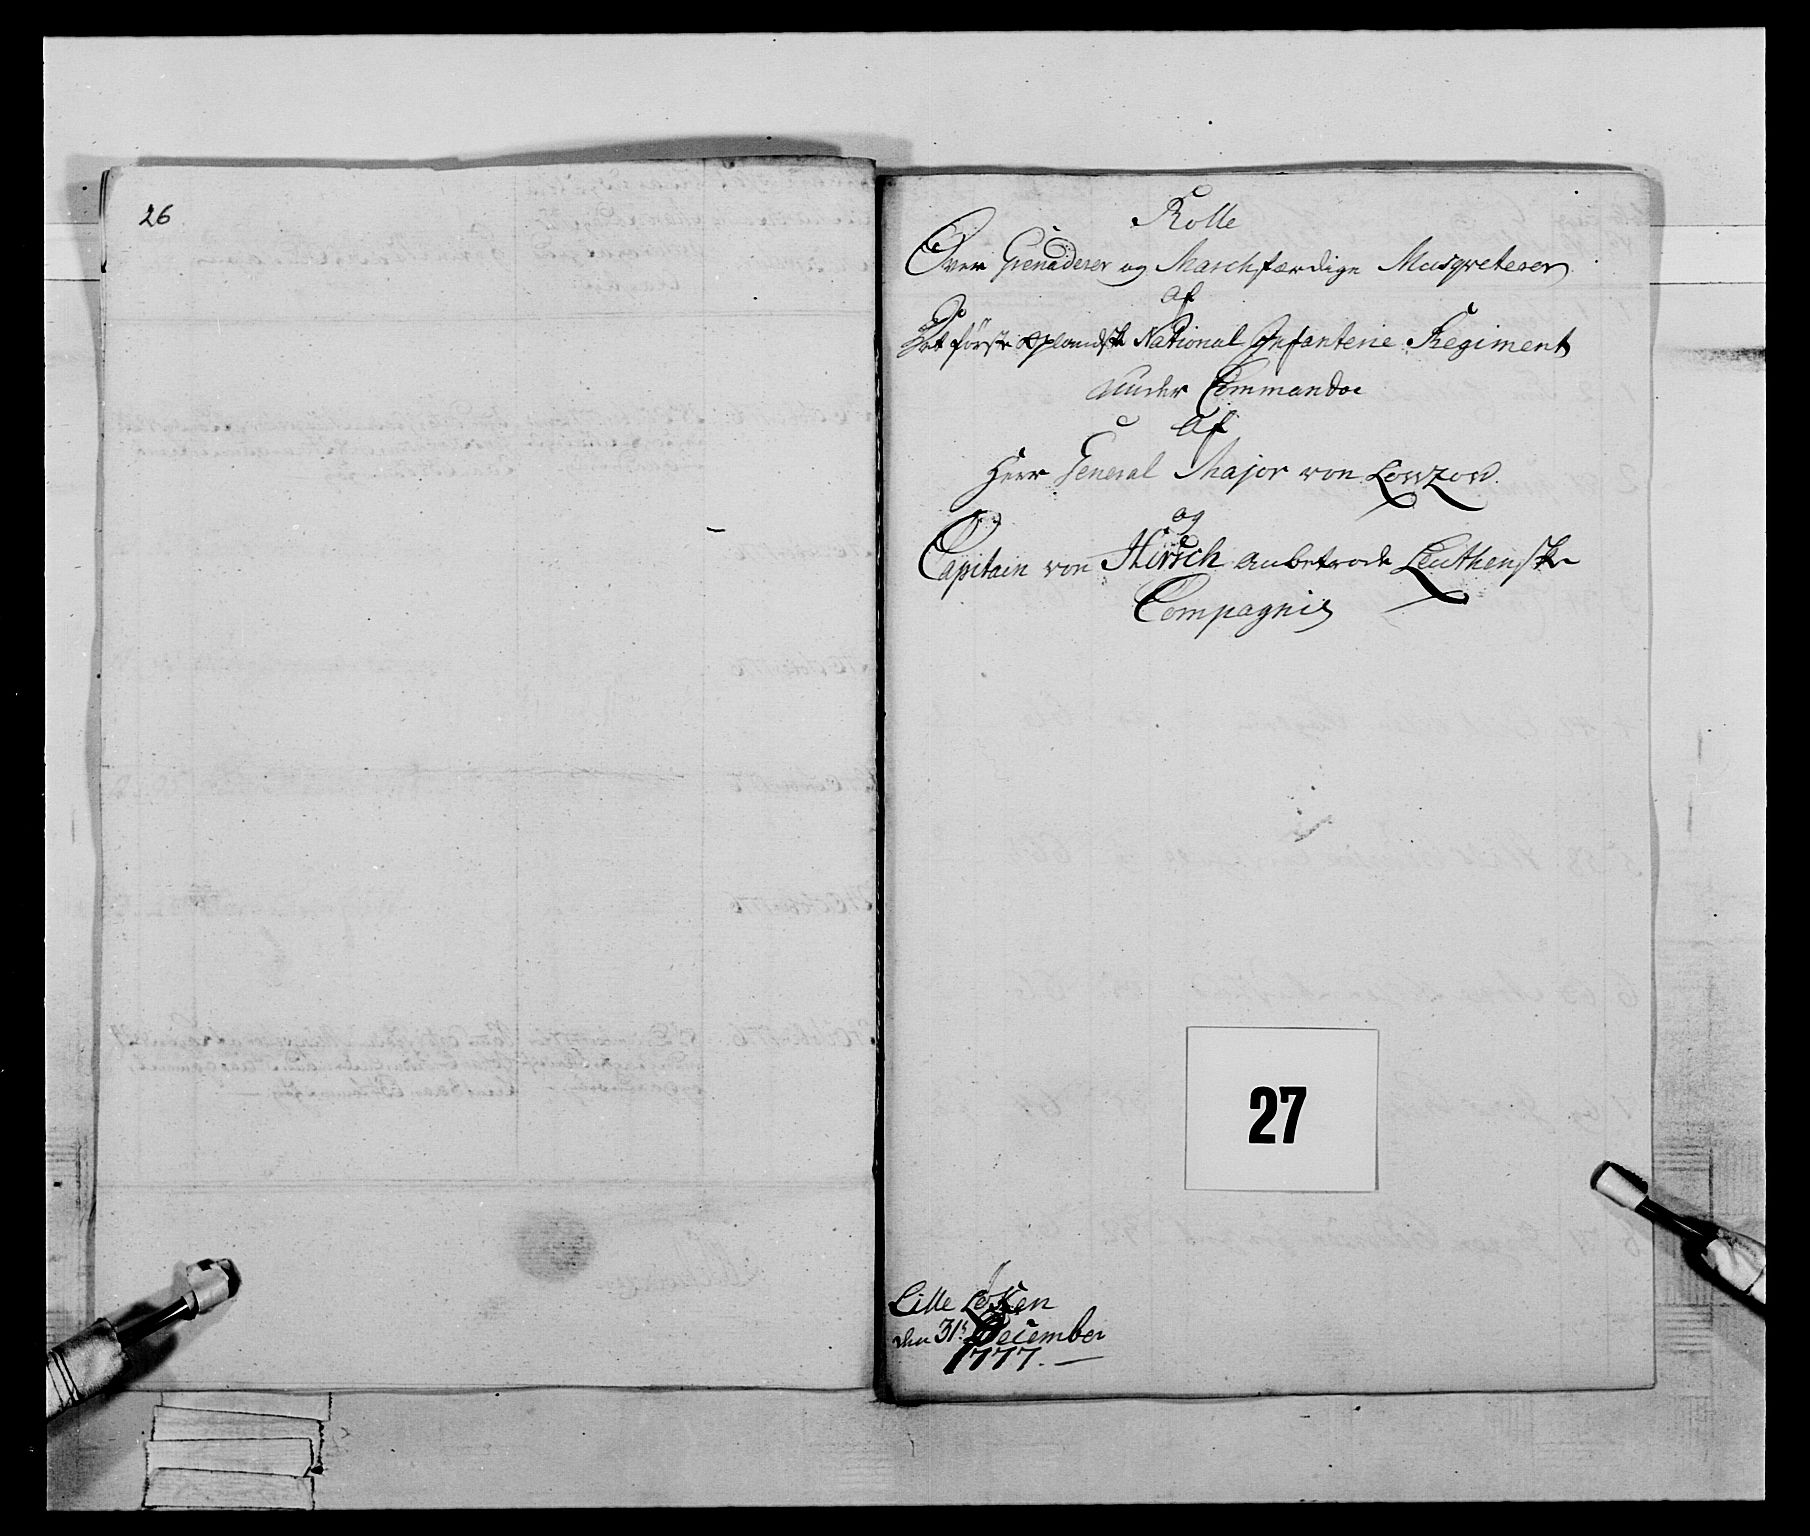 26
Rolle
Over Grenaderer og Marschfærdige Musqveterer
af
Det første Oplandske National Infanterie Regiment
under Commandoe
af
Herr General Major von Lowzow
og
Capitain von Hirsch anbetroede Leuthenske
Compagnie
27
Lille Løken
den 31te December
1777.